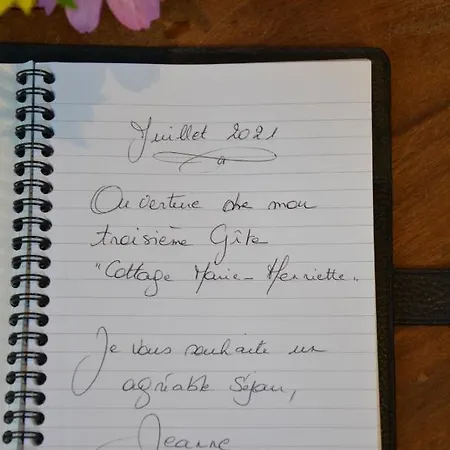 Juillet 2021
Ouverture de mon
troisième Gîte
"Cottage Marie-Henriette"
Je vous souhaite un
agréable Séjour,
Jeanne